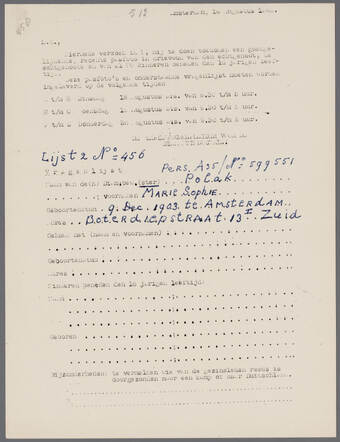 Amsterdam, 1o Augustus
L.S.,
Hiermede verzoek ik U, mij te doen toekomen
recente pasfoto in drievoud van den echtgenoot, de
echtgenoote en van alle kinderen beneden den 16 jarigen leef-
tijd.
Deze pasfoto's en onderstaande vragenlijst moeten worden
ingeleverd op de volgende tijden
t/m Dinsdag 18 Augustus a.s. van 9.30 t/m 5 uur.
t/m Woensdag Augustus a.s. van 9.30 t/m 5 uur.
t/m Z Donderdag 20 Augustus a.s. van 9.30 t/m 5 uur.
Lijst 2 No 456
Pers. A:35/No 599551
Vragenlijst
Naam van de(n) (ster) Polak
voornamen MARIE SOPHIE.
Geboortedatum 9. Dec. 1903. te AMSTERDAM.
Adres BOTERDIEPSTRAAT 13 I Zuid
Gehuwd met (naam en voornamen)
Geboortedatum
Adres
Kinderen beneden den 16 jarigen leeftijd:
Naam
Geboren
Bijzonderheden: te vermelden wie van de gezinsleden reeds is
doorgezonden naar een kamp of naar Duitschland.